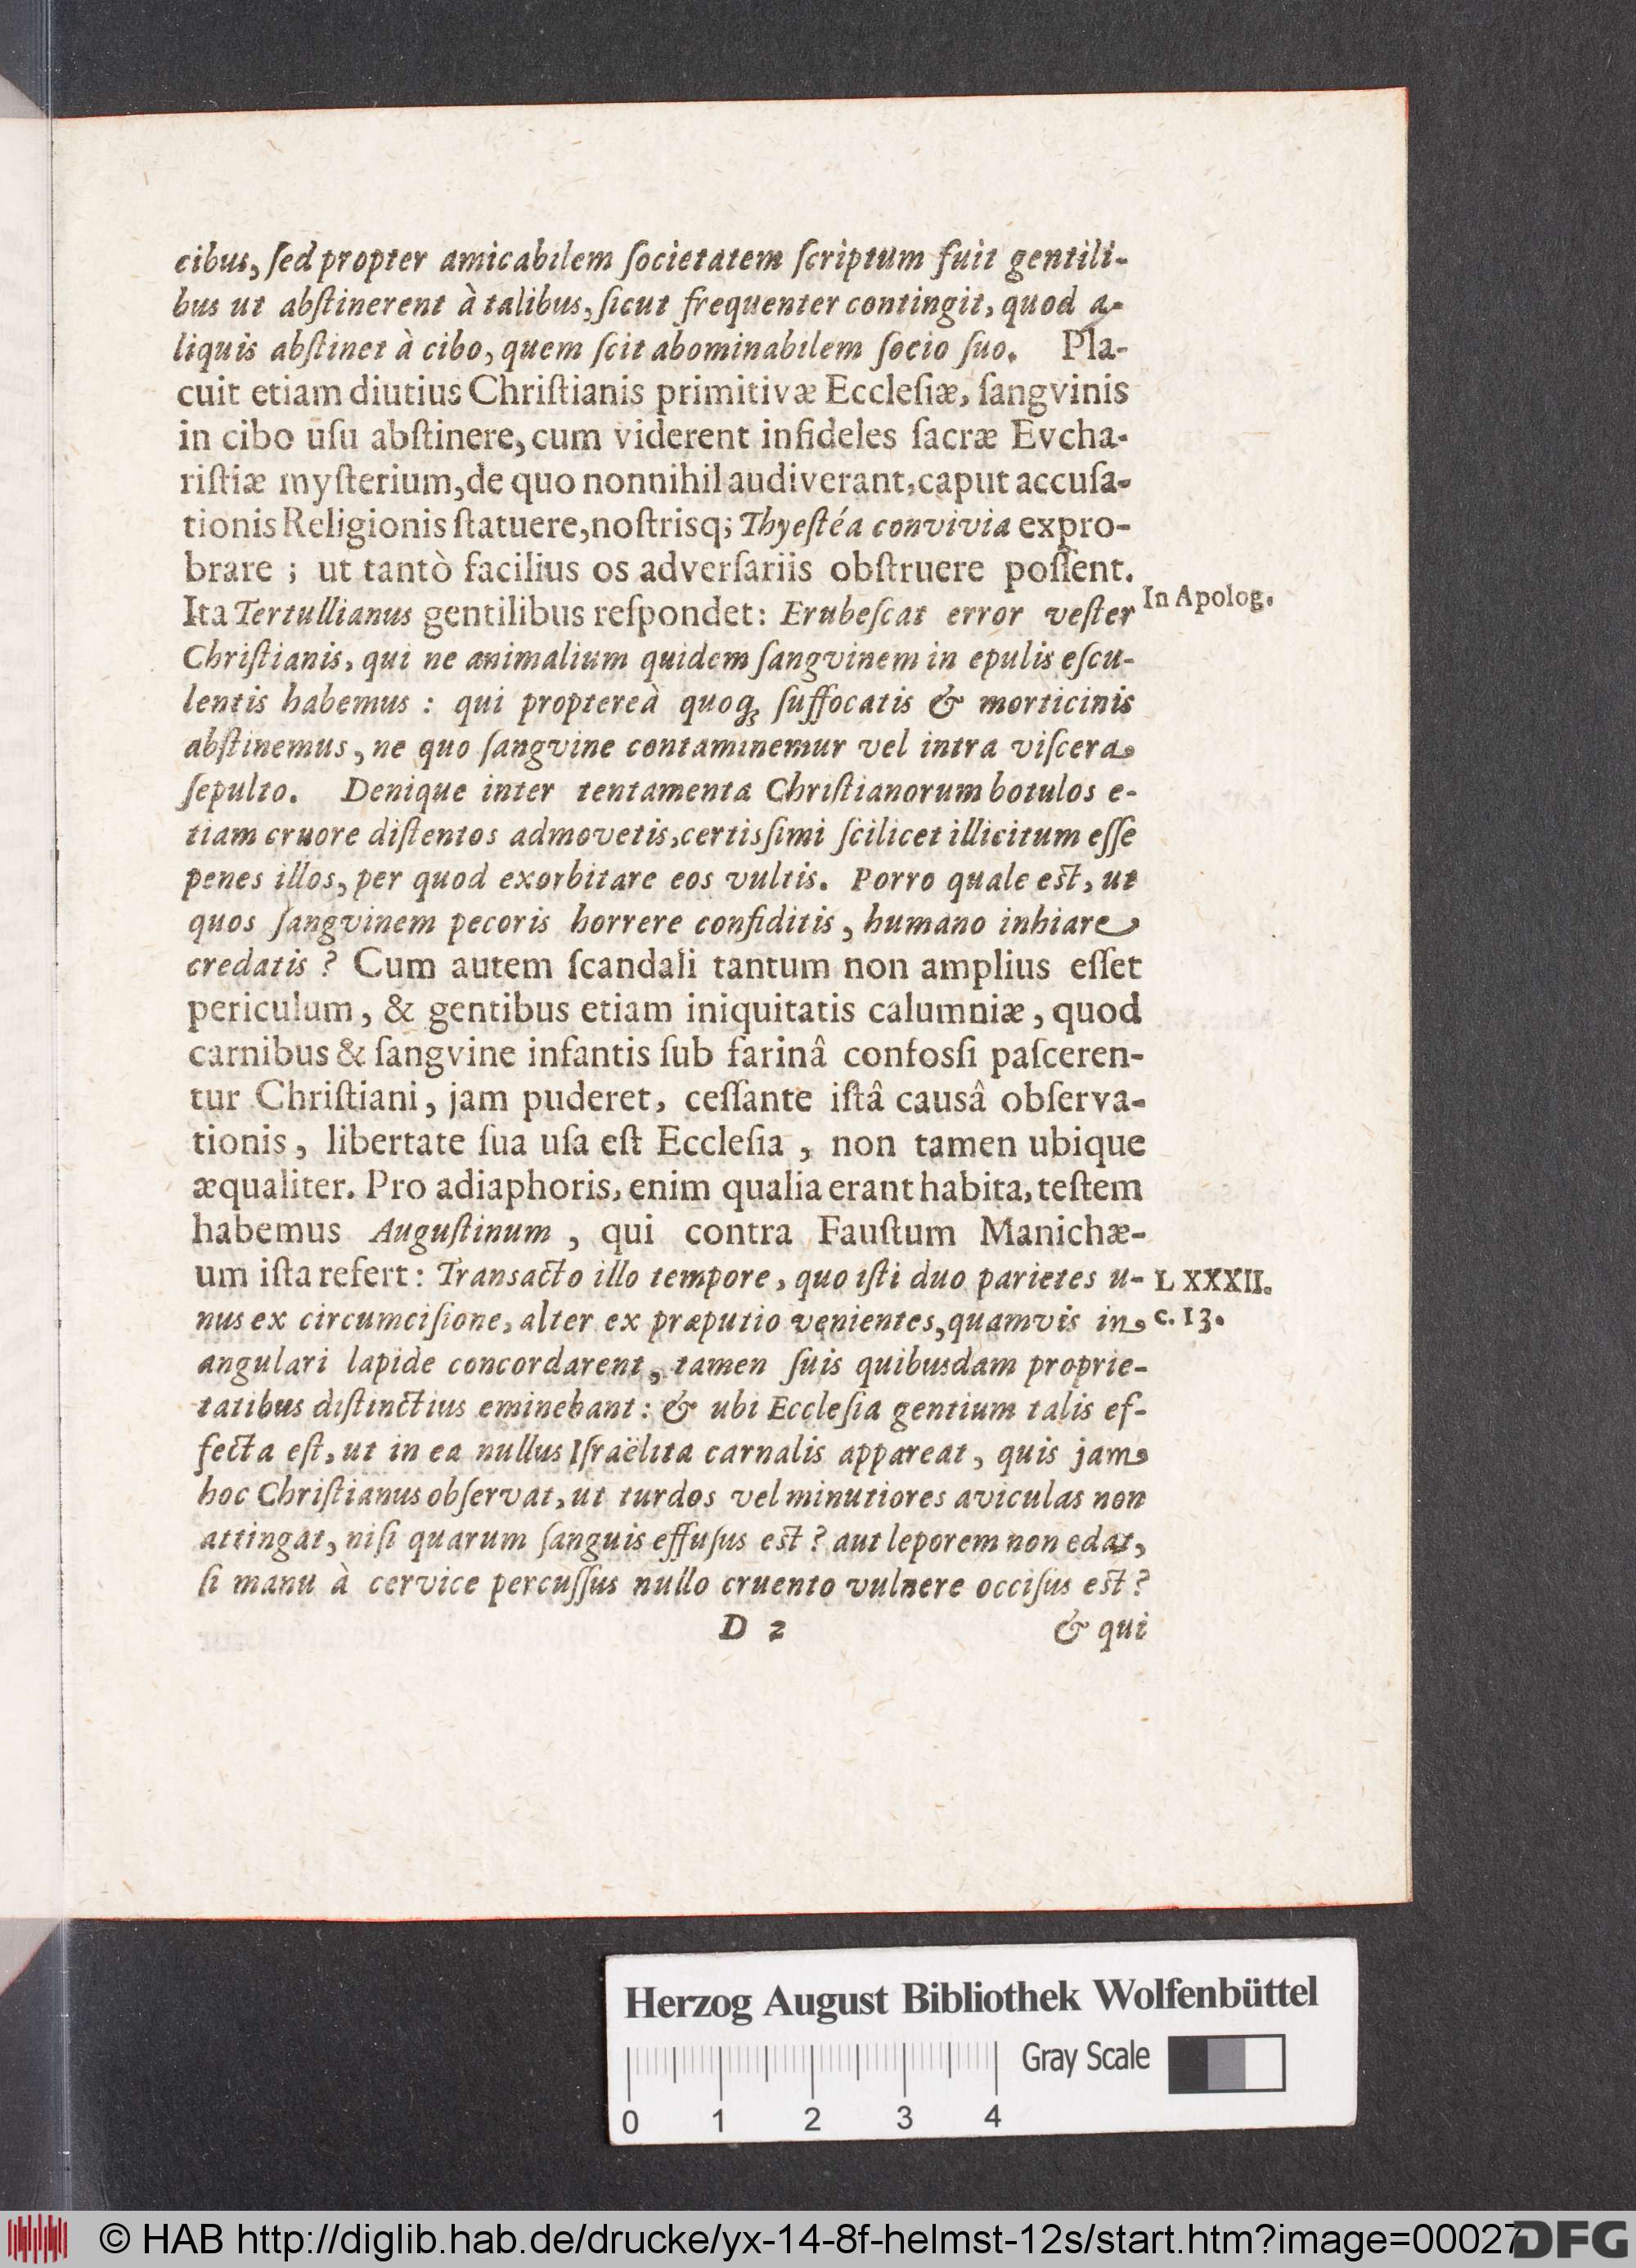 cibus, ſed propter amicabilem ſocietatem ſcriptum fuit gentili-
bus ut abſtinerent à talibus, ſicut frequenter contingit, quod a-
liquis abſtinet à cibo, quem ſcit abominabilem ſocio ſuo. Pla-
cuit etiam diutius Chriſtianis primitivæ Eccleſiæ, ſangvinis
in cibo uſu abſtinere, cum viderent infideles ſacræ Evcha-
riſtiæ myſterium, de quo nonnihil audiverant, caput accuſa-
tionis Religionis ſtatuere, noſtrisq; Thyeſtéa convivia expro-
brare ; ut tantò facilius os adverſariis obſtruere poſſent.
Ita Tertullianus gentilibus reſpondet: Erubeſcat error veſter
In Apolog.
Chriſtianis, qui ne animalium quidem ſangvinem in epulis eſcu-
lentis habemus : qui proptereà quoq; ſuffocatis & morticinis
abſtinemus, ne quo ſangvine contaminemur vel intra viſcera
ſepulto. Denique inter tentamenta Chriſtianorum botulos e-
tiam cruore diſtentos admovetis, certisſimi ſcilicet illicitum eſſe
penes illos, per quod exorbitare eos vultis. Porro quale est, ut
quos ſangvinem pecoris horrere confiditis, humano inhiare
credatis ? Cum autem ſcandali tantum non amplius eſſet
periculum, & gentibus etiam iniquitatis calumniæ, quod
carnibus & ſangvine infantis ſub farinâ confosſi paſceren-
tur Chriſtiani, jam puderet, ceſſante iſtâ causâ obſerva-
tionis, libertate ſua uſa eſt Eccleſia, non tamen ubique
æqualiter. Pro adiaphoris, enim qualia erant habita, teſtem
habemus Auguſtinum, qui contra Fauſtum Manichæ-
um iſta refert: Transacto illo tempore, quo iſti duo parietes u-
L XXXII.
nus ex circumciſione, alter ex præputio venientes, quamvis in
c. 13.
angulari lapide concordarent, tamen ſuis quibusdam proprie-
tatibus diſtinctius eminebant: & ubi Eccleſia gentium talis ef-
fecta eſt, ut in ea nullus Iſraëlita carnalis appareat, quis jam
hoc Chriſtianus obſervat, ut turdos vel minutiores aviculas non
attingat, niſi quarum ſanguis effuſus est ? aut leporem non edat,
ſi manu à cervice percuſſus nullo cruento vulnere occiſus est ?
D 2
& qui
Herzog August Bibliothek Wolfenbüttel
Gray Scale
0 1 2 3 4
© HAB http://diglib.hab.de/drucke/yx-14-8f-helmst-12s/start.htm?image=00027
DFG